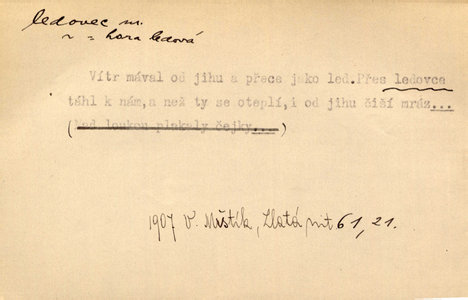 ledovec m.
v = hora ledová
Vítr mával od jihu a přece jako led.Přes ledovce
táhl k nám,a než ty se oteplí,i od jihu čiší mráz...
(Nad loukou plakaly čejky...)
1907 V. Mrštík, Zlatá nit 61, 21.